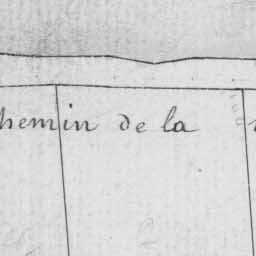 hemin de la